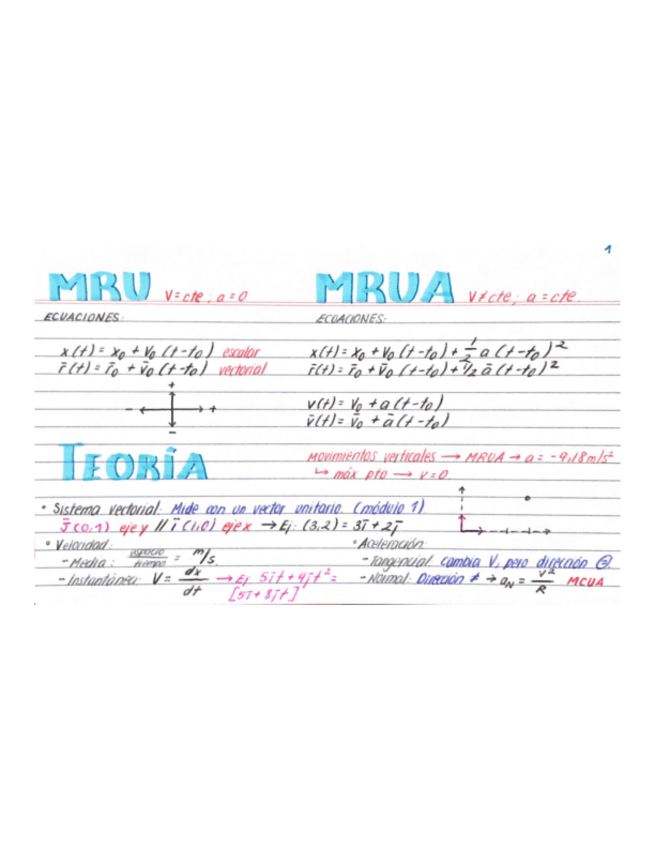 1
MRU V=cte; a=0
ECUACIONES:
x(t)= x₀ + v₀ (t-t₀) escalar
r̄(t)= r̄₀ + v̄₀ (t-t₀) vectorial
+
- +
-
MRUA V≠cte; a=cte.
ECUACIONES:
x(t)= x₀ + v₀ (t-t₀) + 1/2 a (t-t₀)²
r̄(t)= r̄₀ + v̄₀ (t-t₀) + 1/2 ā (t-t₀)²
v(t)= v₀ + a(t-t₀)
v̄(t)= v̄₀ + ā(t-t₀)
Movimientos verticales → MRUA → a = -9,18m/s²
↳ máx pto → v=0
TEORÍA
• Sistema vectorial: Mide con un vector unitario. (módulo 1)
J̄(0,1) eje y // ī (1,0) eje x → Ej: (3,2) = 3ī + 2j̄
• Velocidad:
- Media: espacio/tiempo = m/s.
- Instantánea: V = dx/dt → Ej 5īt + 4j̄t² =
[5ī + 8j̄t]
• Aceleración:
- Tangencial: cambia V, pero dirección ⊜.
- Normal: Dirección ≠ → aN = v²/R MCUA